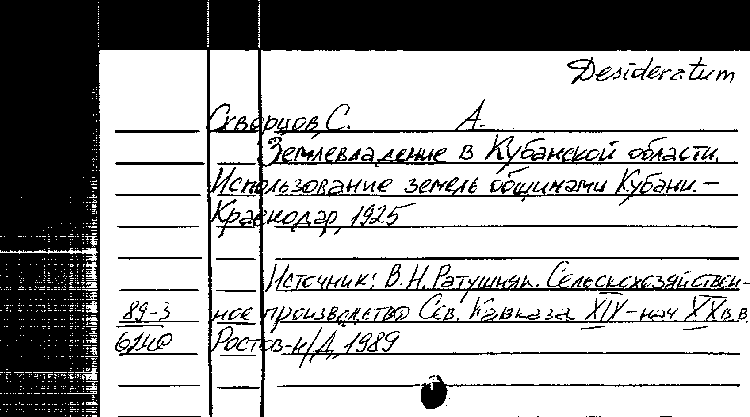 Desideratum
Скворцов, С. А.
Землевладение в Кубанской области.
Использование земель общинами Кубани. –
Краснодар, 1925
Источник: В.Н. Ратушняк. Сельскохозяйствен-
ное производство Сев. Кавказа XIX – нач XX в.в
Ростов-н/Д, 1989
89-3
6240